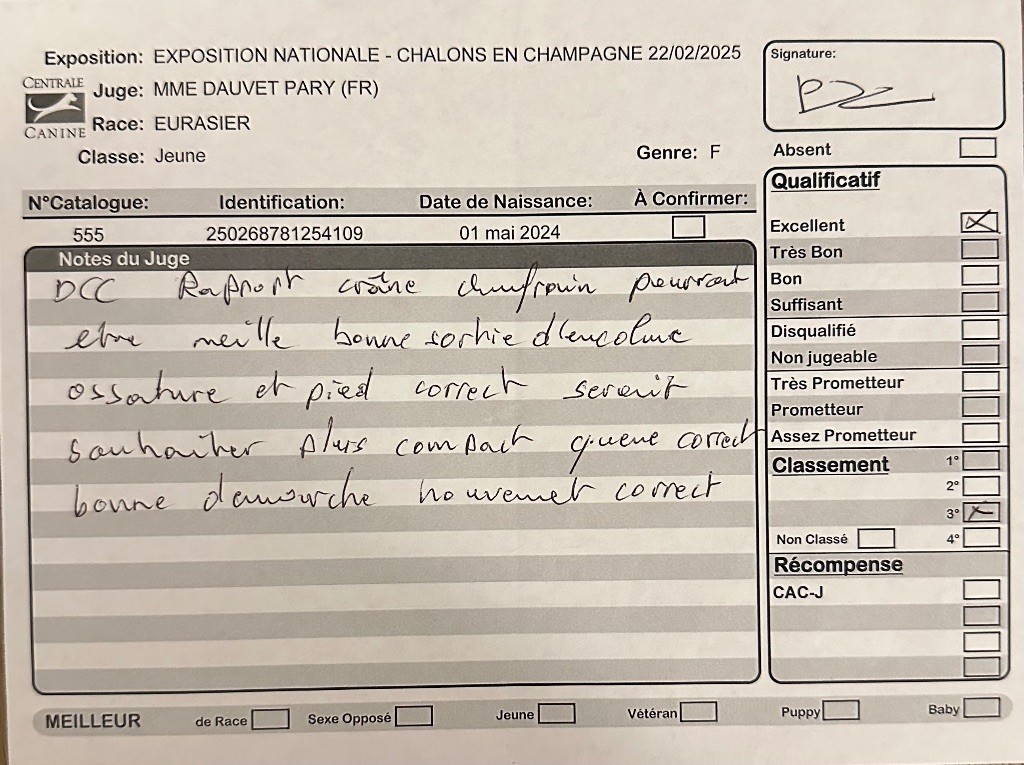 Exposition: EXPOSITION NATIONALE - CHALONS EN CHAMPAGNE 22/02/2025
CENTRALE CANINE
Juge: MME DAUVET PARY (FR)
Race: EURASIER
Classe: Jeune
Genre: F
N°Catalogue: Identification: Date de Naissance: À Confirmer:
555 250268781254109 01 mai 2024
Notes du Juge
DCC Rapport crâne chanfrain pourrait
etre meille bonne sortie d'encolure
ossature et pied correct serait
souhaiter plus compact queue correct
bonne demarche mouvemet correct
Signature:
Absent
Qualificatif
Excellent
Très Bon
Bon
Suffisant
Disqualifié
Non jugeable
Très Prometteur
Prometteur
Assez Prometteur
Classement
1°
2°
3°
Non Classé 4°
Récompense
CAC-J
MEILLEUR de Race Sexe Opposé Jeune Vétéran Puppy Baby